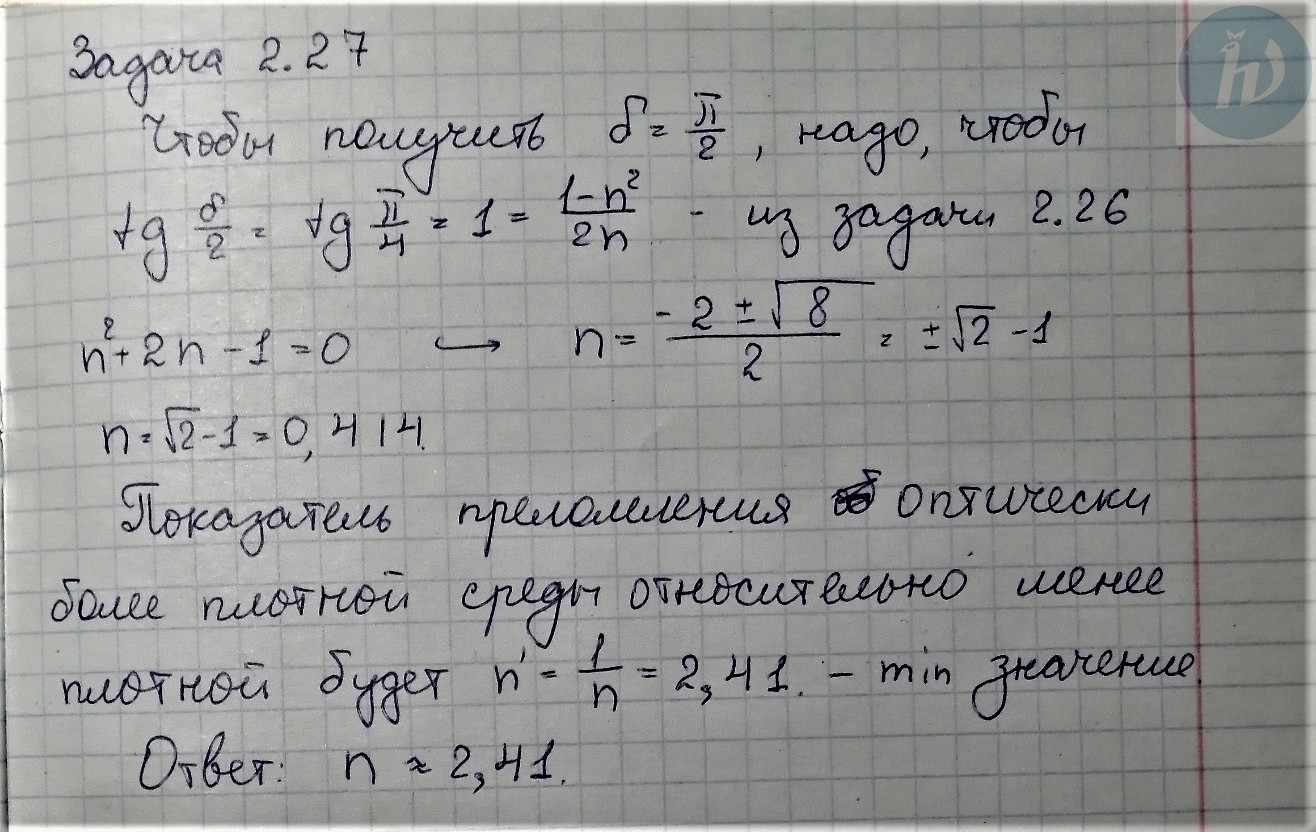 Задача 2.27
Чтобы получить δ = π/2, надо, чтобы
tg δ/2 = tg π/4 = 1 = (1-n²)/(2n) - из задачи 2.26
n² + 2n - 1 = 0 ↪ n = (-2 ± √8)/2 = ±√2 - 1
n = √2 - 1 = 0,414.
Показатель преломления оптически
более плотной среды относительно менее
плотной будет n' = 1/n = 2,41. - min значение.
Ответ: n ≈ 2,41.